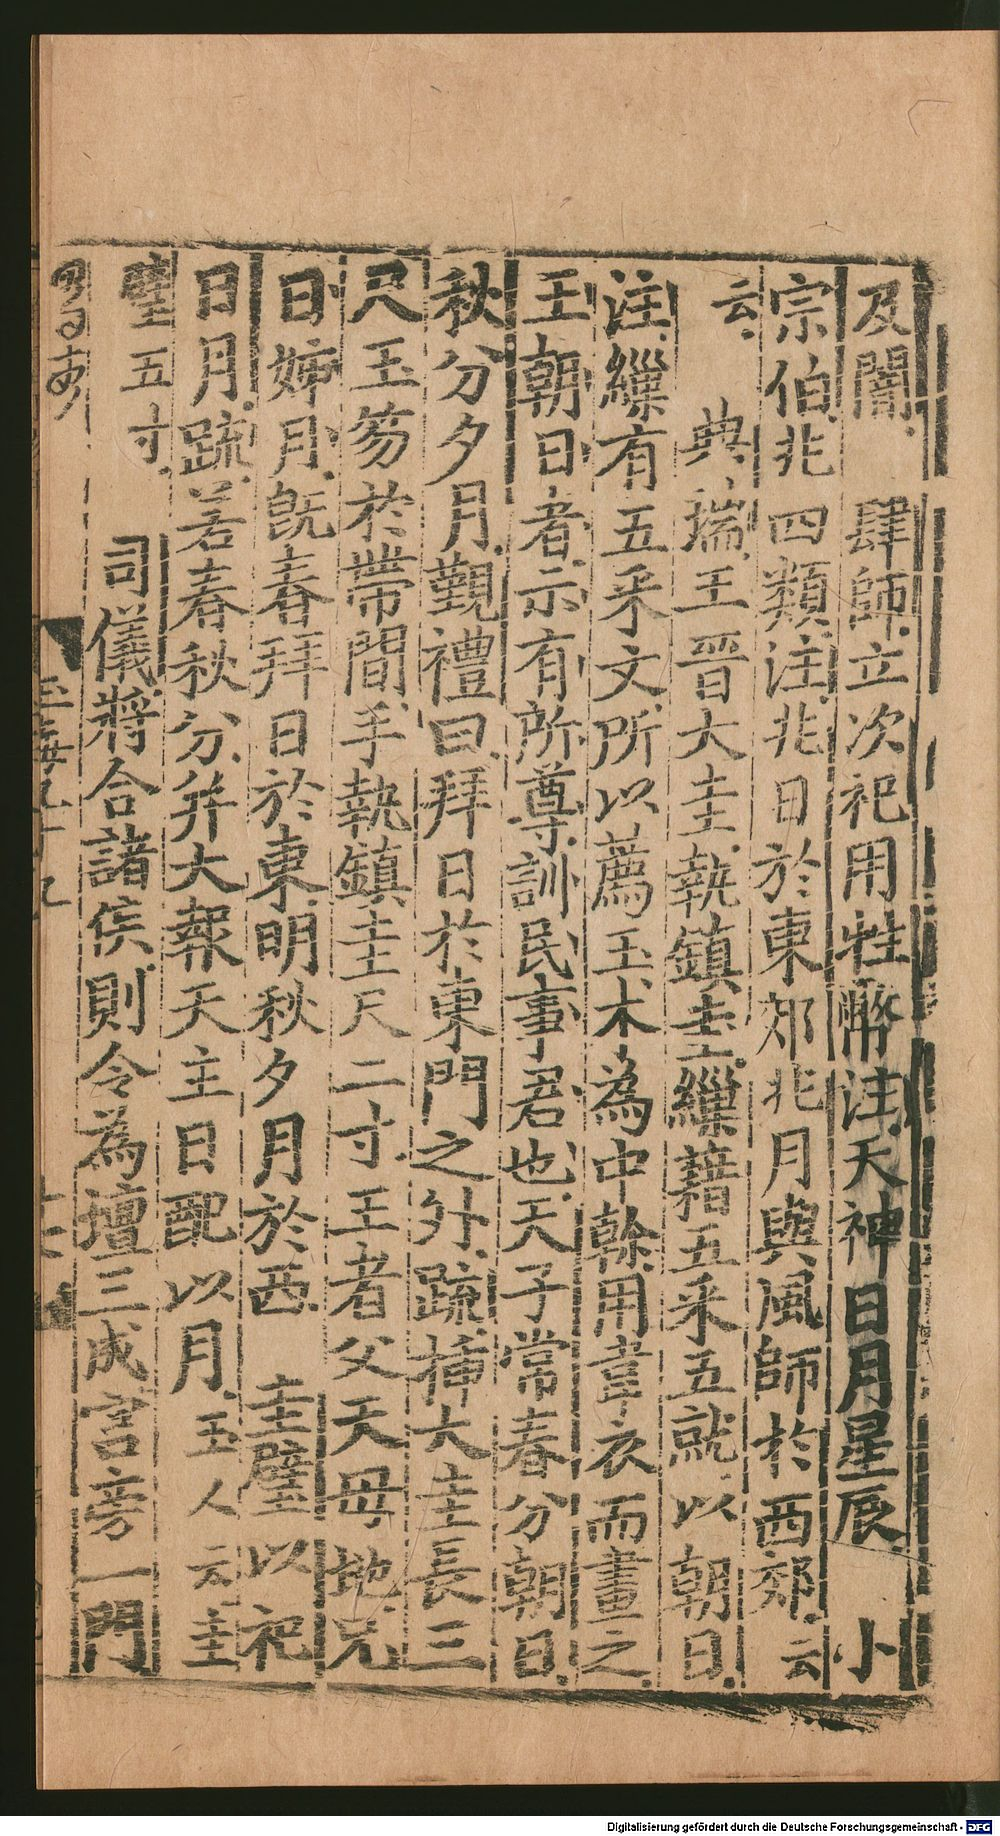 及闇　肆師立次祀用牲幣注天神日月星辰　小
宗伯兆四類注兆日於東郊兆月與風師於西郊云
云　典瑞王晉大圭執鎮圭繅藉五采五就以朝日
注繅有五采文所以薦玉木為中榦用韋衣而畫之
王朝日者示有所尊訓民事君也天子常春分朝日
秋分夕月覲禮曰拜日於東門之外疏揷大圭長三
尺玉笏於帶間手執鎮圭尺二寸王者父天母地兄
日姊月旣春拜日於東明秋夕月於西　圭璧以祀
日月疏若春秋分并大報天主日配以月玉人云圭
璧五寸　司儀將合諸侯則令為壇三成宮旁一門
Digitalisierung gefördert durch die Deutsche Forschungsgemeinschaft - DFG